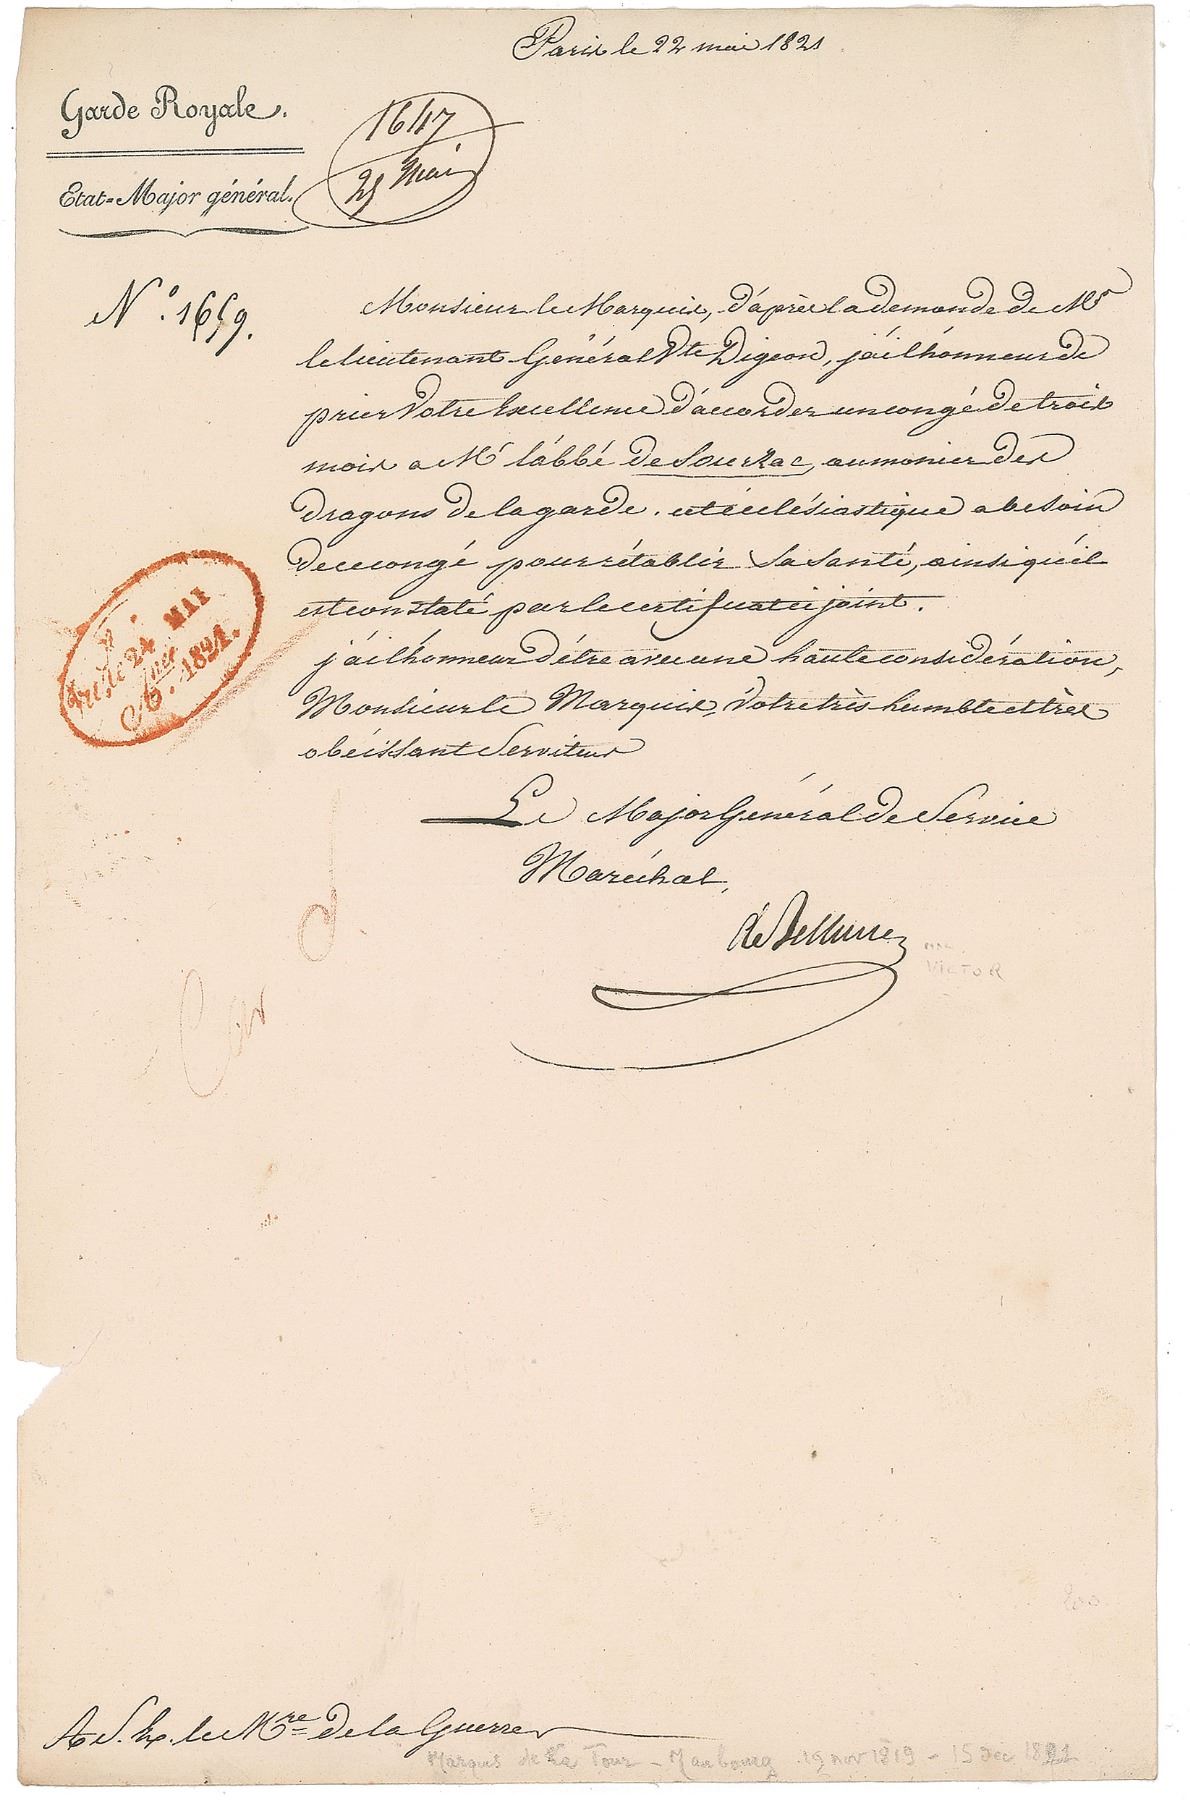 Paris le 22 mai 1821
Garde Royale.
1647
25 Mai
Etat-Major général.
N.º 1659.
Monsieur le Marquis, d'après la demande de Mr
le lieutenant Général Vte Digeon, j'ai l'honneur de
prier Votre Excellence d'accorder un congé de trois
mois a Mr l'abbé de Sourzac, aumonier des
dragons de la garde. cet écclésiastique a besoin
de ce congé pour rétablir sa santé, ainsi qu'il
est constaté par le certificat ci joint.
j'ai l'honneur d'être avec une haute considération,
Monsieur le Marquis, Votre très humble et très
obéissant Serviteur
24 MAI
1821.
Le Major Général de Service
Maréchal,
de Bellune
VICTOR
A S. Ex. le Mre de la Guerre
Marquis de La Tour-Maubourg 19 nov 1819 - 15 Dec 1821